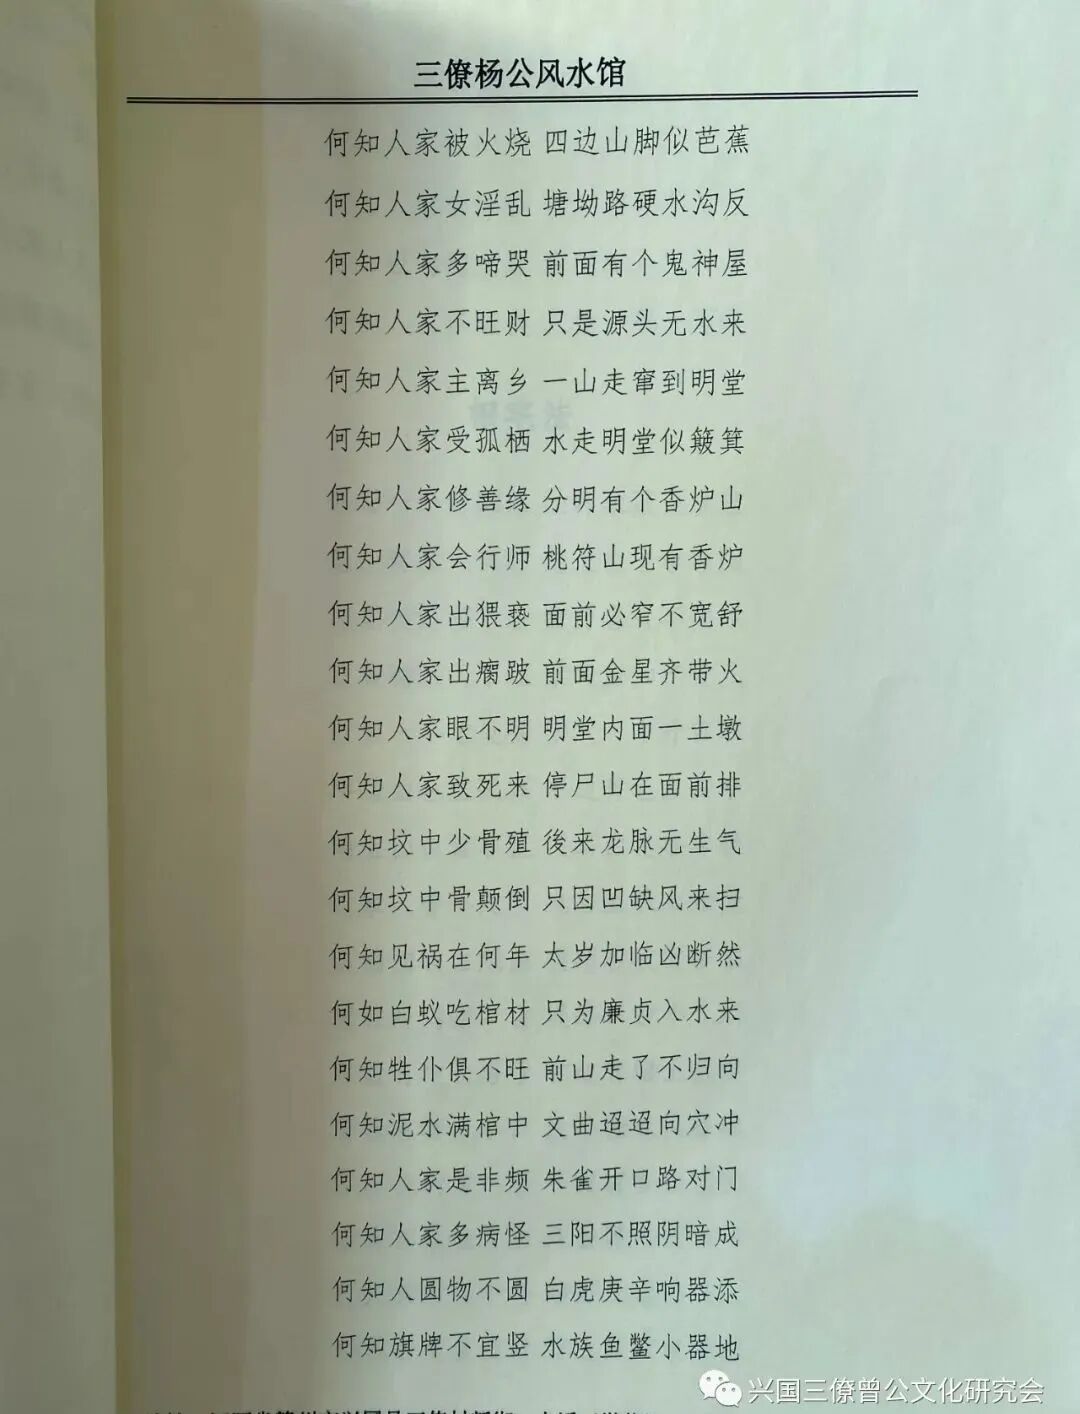 三僚杨公风水馆
何知人家被火烧 四边山脚似芭蕉
何知人家女淫乱 塘坳路硬水沟反
何知人家多啼哭 前面有个鬼神屋
何知人家不旺财 只是源头无水来
何知人家主离乡 一山走窜到明堂
何知人家受孤栖 水走明堂似簸箕
何知人家修善缘 分明有个香炉山
何知人家会行师 桃符山现有香炉
何知人家出猥亵 面前必窄不宽舒
何知人家出瘸跛 前面金星齐带火
何知人家眼不明 明堂内面一土墩
何知人家致死来 停尸山在面前排
何知坟中少骨殖 後来龙脉无生气
何知坟中骨颠倒 只因凹缺风来扫
何知见祸在何年 太岁加临凶断然
何如白蚁吃棺材 只为廉贞入水来
何知牲仆俱不旺 前山走了不归向
何知泥水满棺中 文曲迢迢向穴冲
何知人家是非频 朱雀开口路对门
何知人家多病怪 三阳不照阴暗成
何知人圆物不圆 白虎庚辛响器添
何知旗牌不宜竖 水族鱼鳖小器地
兴国三僚曾公文化研究会